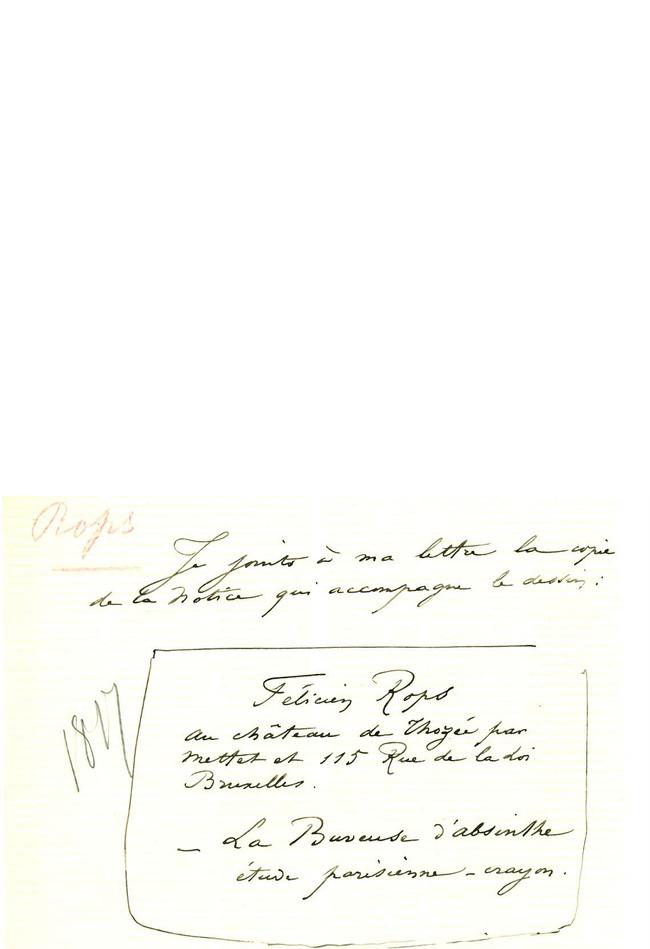 Rops
Je joints à ma lettre la copie
de la Notice qui accompagne le dessin :
1817
Félicien Rops
au château de Thozée par
Mettet et 115 Rue de la Loi
Bruxelles.
_ La Buveuse d'absinthe
étude parisienne - crayon.